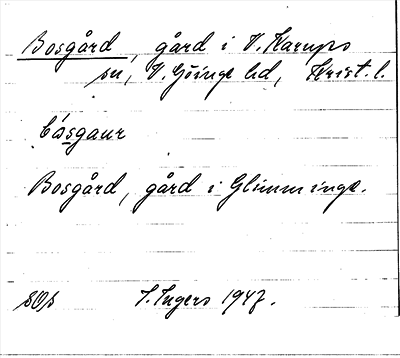 Bosgård, gård i V. Karups
sn, V. Göinge hd, Krist. l.
bósgaur
Bosgård, gård i Glimminge.
SOp I. Ingers 1947.